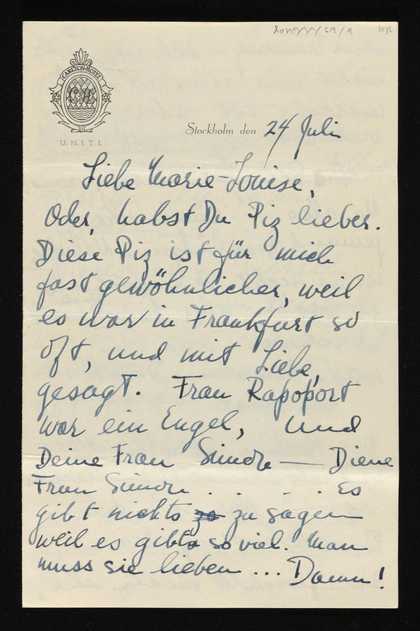 CARLTON HOTEL
U.N.I.T.I.
Stockholm den 24 Juli
Liebe Marie-Louise,
Oder, habst Du Piz lieber.
Diese Piz ist für mich
fast gewöhnlicher, weil
es war in Frankfurt so
oft, und mit Liebe,
gesagt. Frau Rapoport
war ein Engel, und
Deine Frau Simon — Diene
Frau Simon . . . . . Es
gibt nichts zo zu sagen
weil es gibt's so viel. Man
muss sie lieben ... Damn!